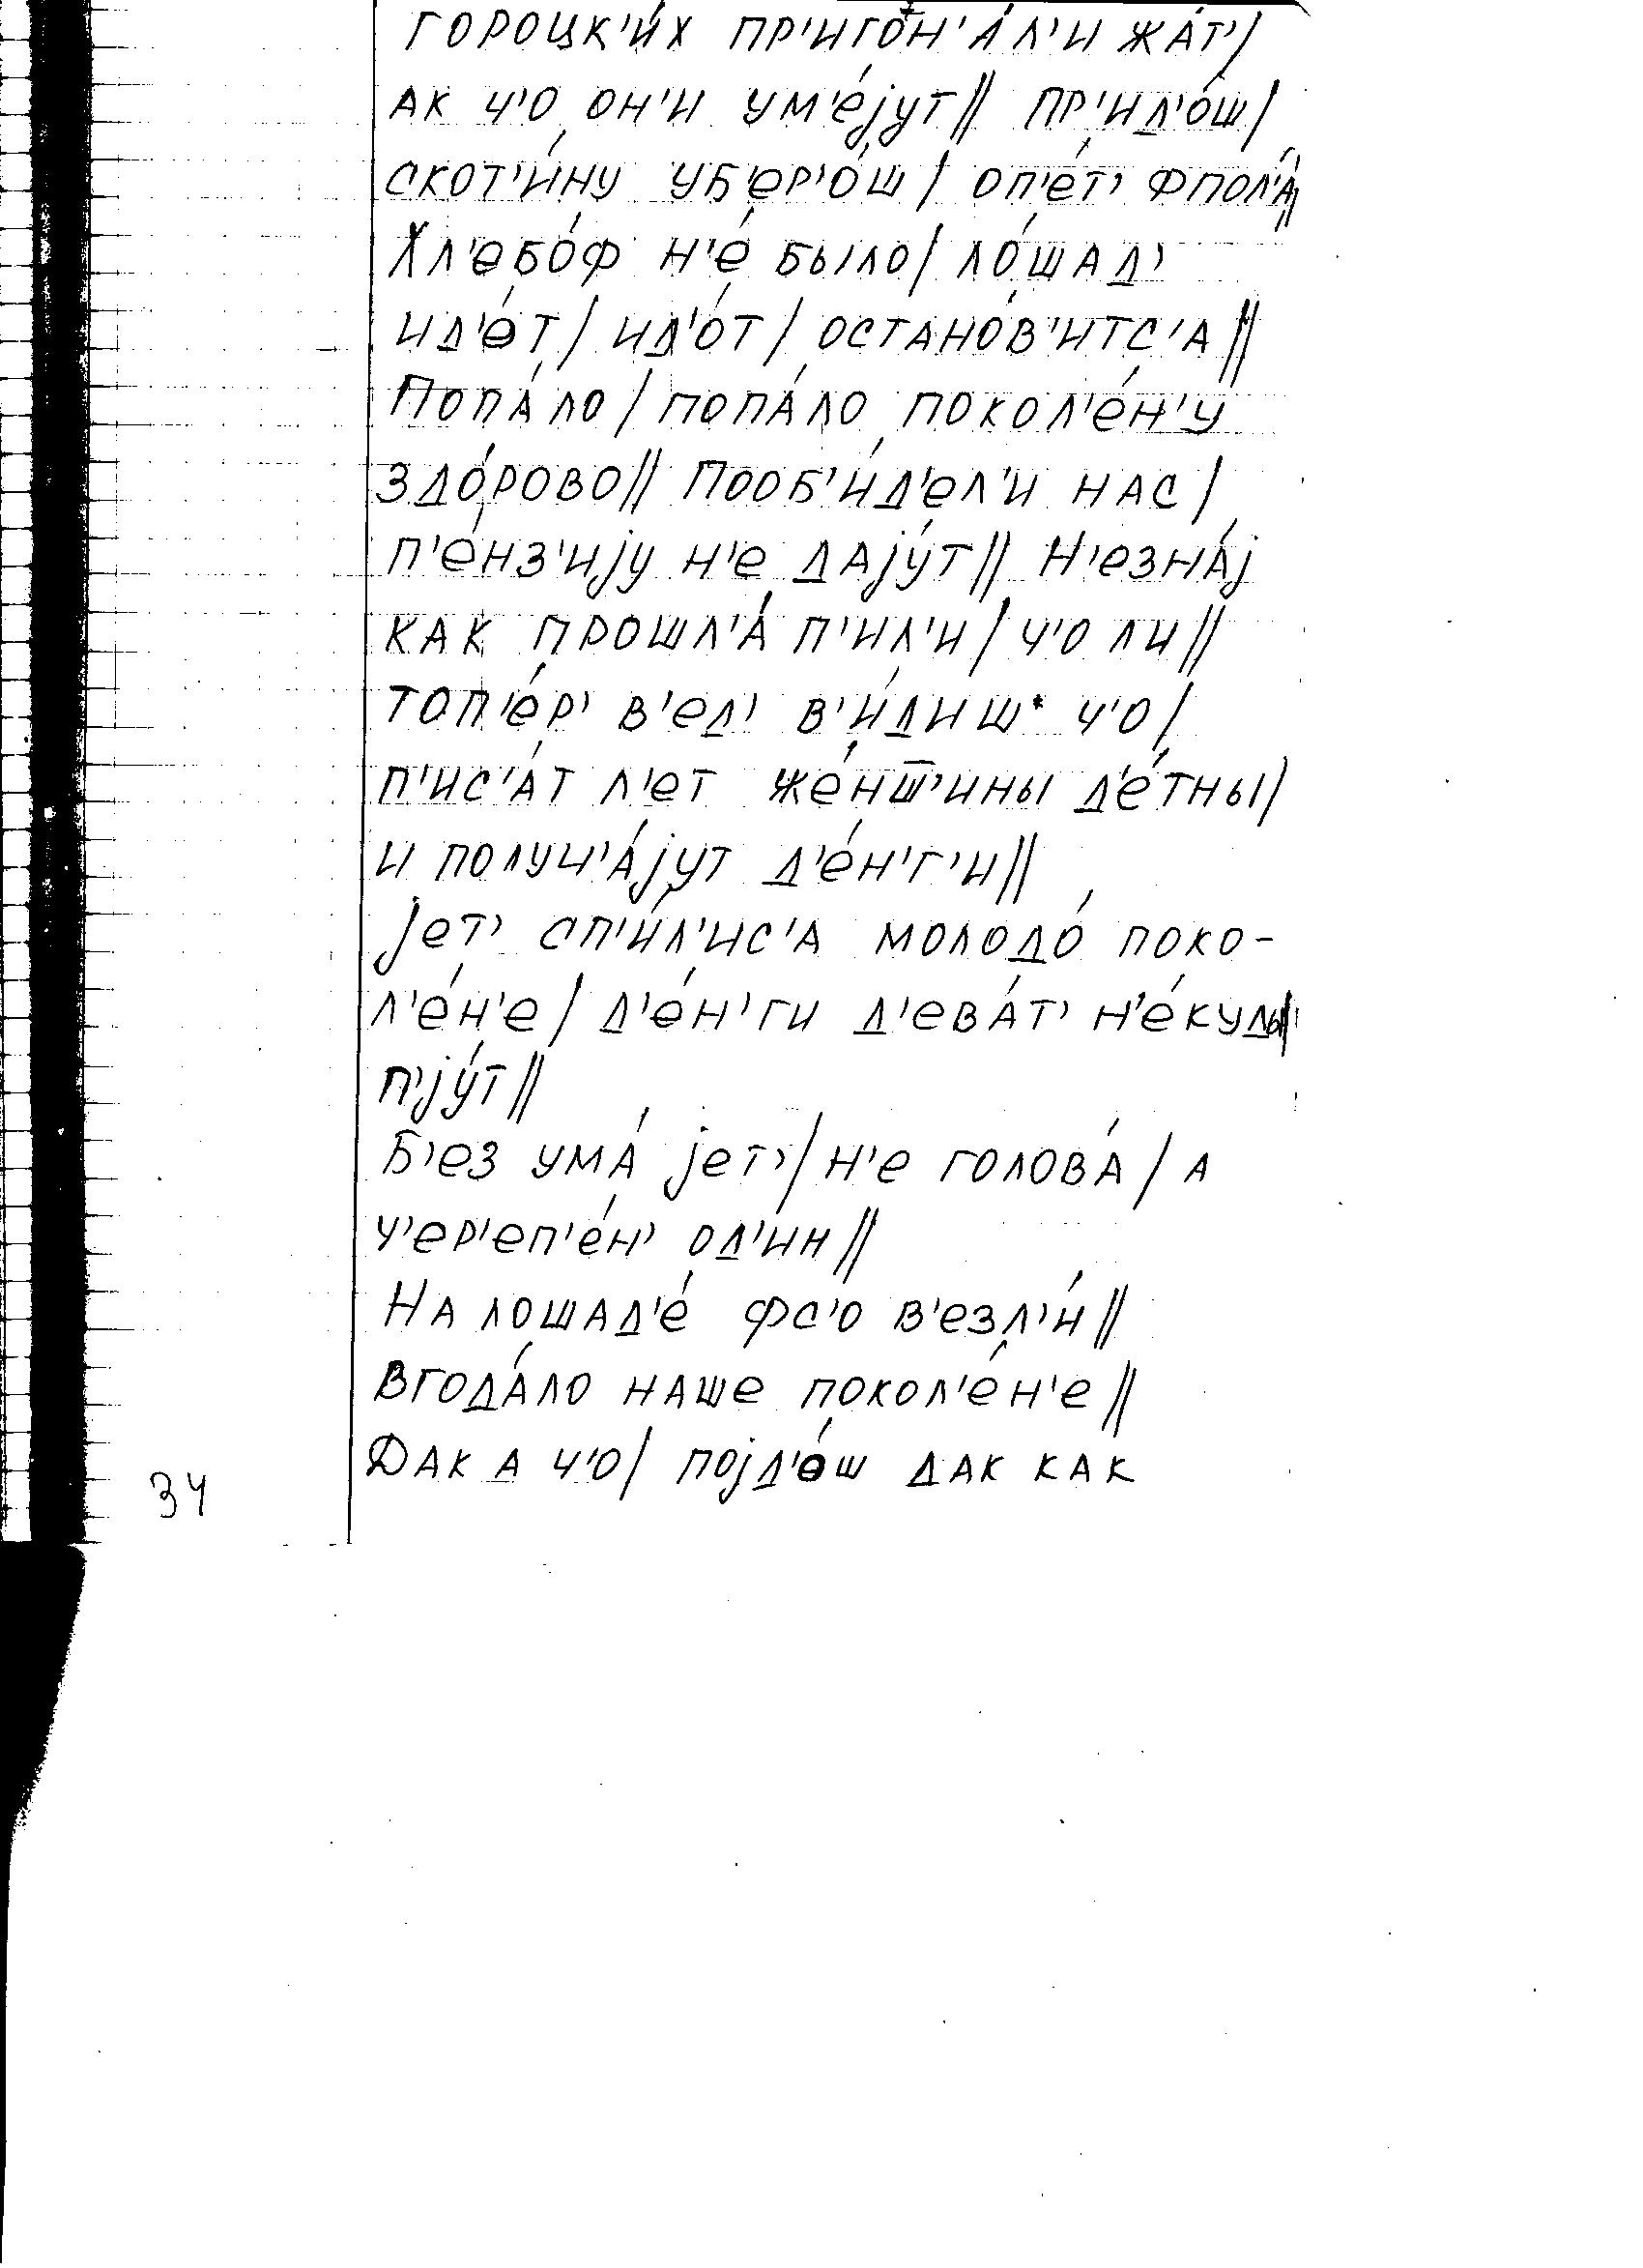 ГОРОЦК'И́Х ПР'ИГОН'А́Л'И ЖА́Т'/
АК Ч'О ОН'И УМ'е́jУТ// ПР'ИД'О́Ш/
СКОТ'И́НУ УБ'еР'О́Ш/ ОП'е́Т' ФПОЛ'А́//
ХЛ'еБО́Ф Н'е́ БЫЛО/ ЛО́ШАД'
ИД'е́Т/ ИД'О́Т/ ОСТАНО́В'ИТС'А//
ПОПА́ЛО/ ПОПА́ЛО ПОКОЛ'е́Н'У
ЗДО́РОВО// ПООБ'И́Д'еЛ'И НАС/
П'е́НЗ'ИjУ Н'е ДАjУ́Т// Н'еЗНА́j
КАК ПРОШЛ'А́ П'ИЛ'И/ Ч'О ЛИ//
ТОП'е́Р' В'еД' В'И́ДИШ* Ч'О/
П'ИС'А́Т Л'еТ Же́НШ̅'ИНЫ Д'е́ТНЫ/
И ПОЛУЧ'А́jУТ Д'е́Н'Г'И//
jеТ' СП'И́Л'ИС'А МОЛОДО́ ПОКО-
Л'е́Н'е/ Д'е́Н'ГИ Д'еВА́Т' Н'е́КУДЫ//
П'jУ́Т//
Б'еЗ УМА́ jеТ'/ Н'е ГОЛОВА́/ А
Ч'еР'еП'е́Н' ОД'ИН//
НА ЛОШАД'е́ ФС'О В'еЗЛ'И́//
ВГОДА́ЛО НАШе ПОКОЛ'е́Н'е//
ДАК А Ч'О/ ПОjД'О́Ш ДАК КАК
34